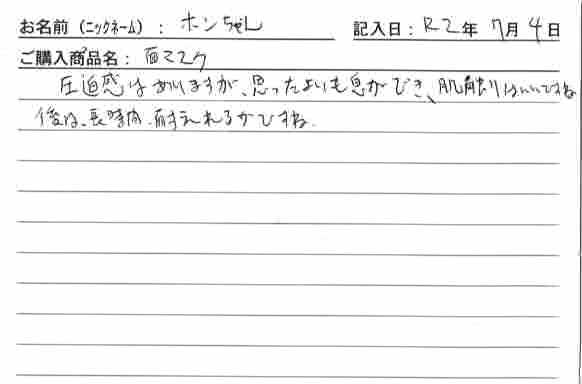 お名前（ニックネーム）：ホンちゃん 記入日：R2年7月4日
ご購入商品名：面マスク
圧迫感はありますが、思ったよりも息ができ、肌触りはいいですね
後は、長時間、耐えれるかですね。